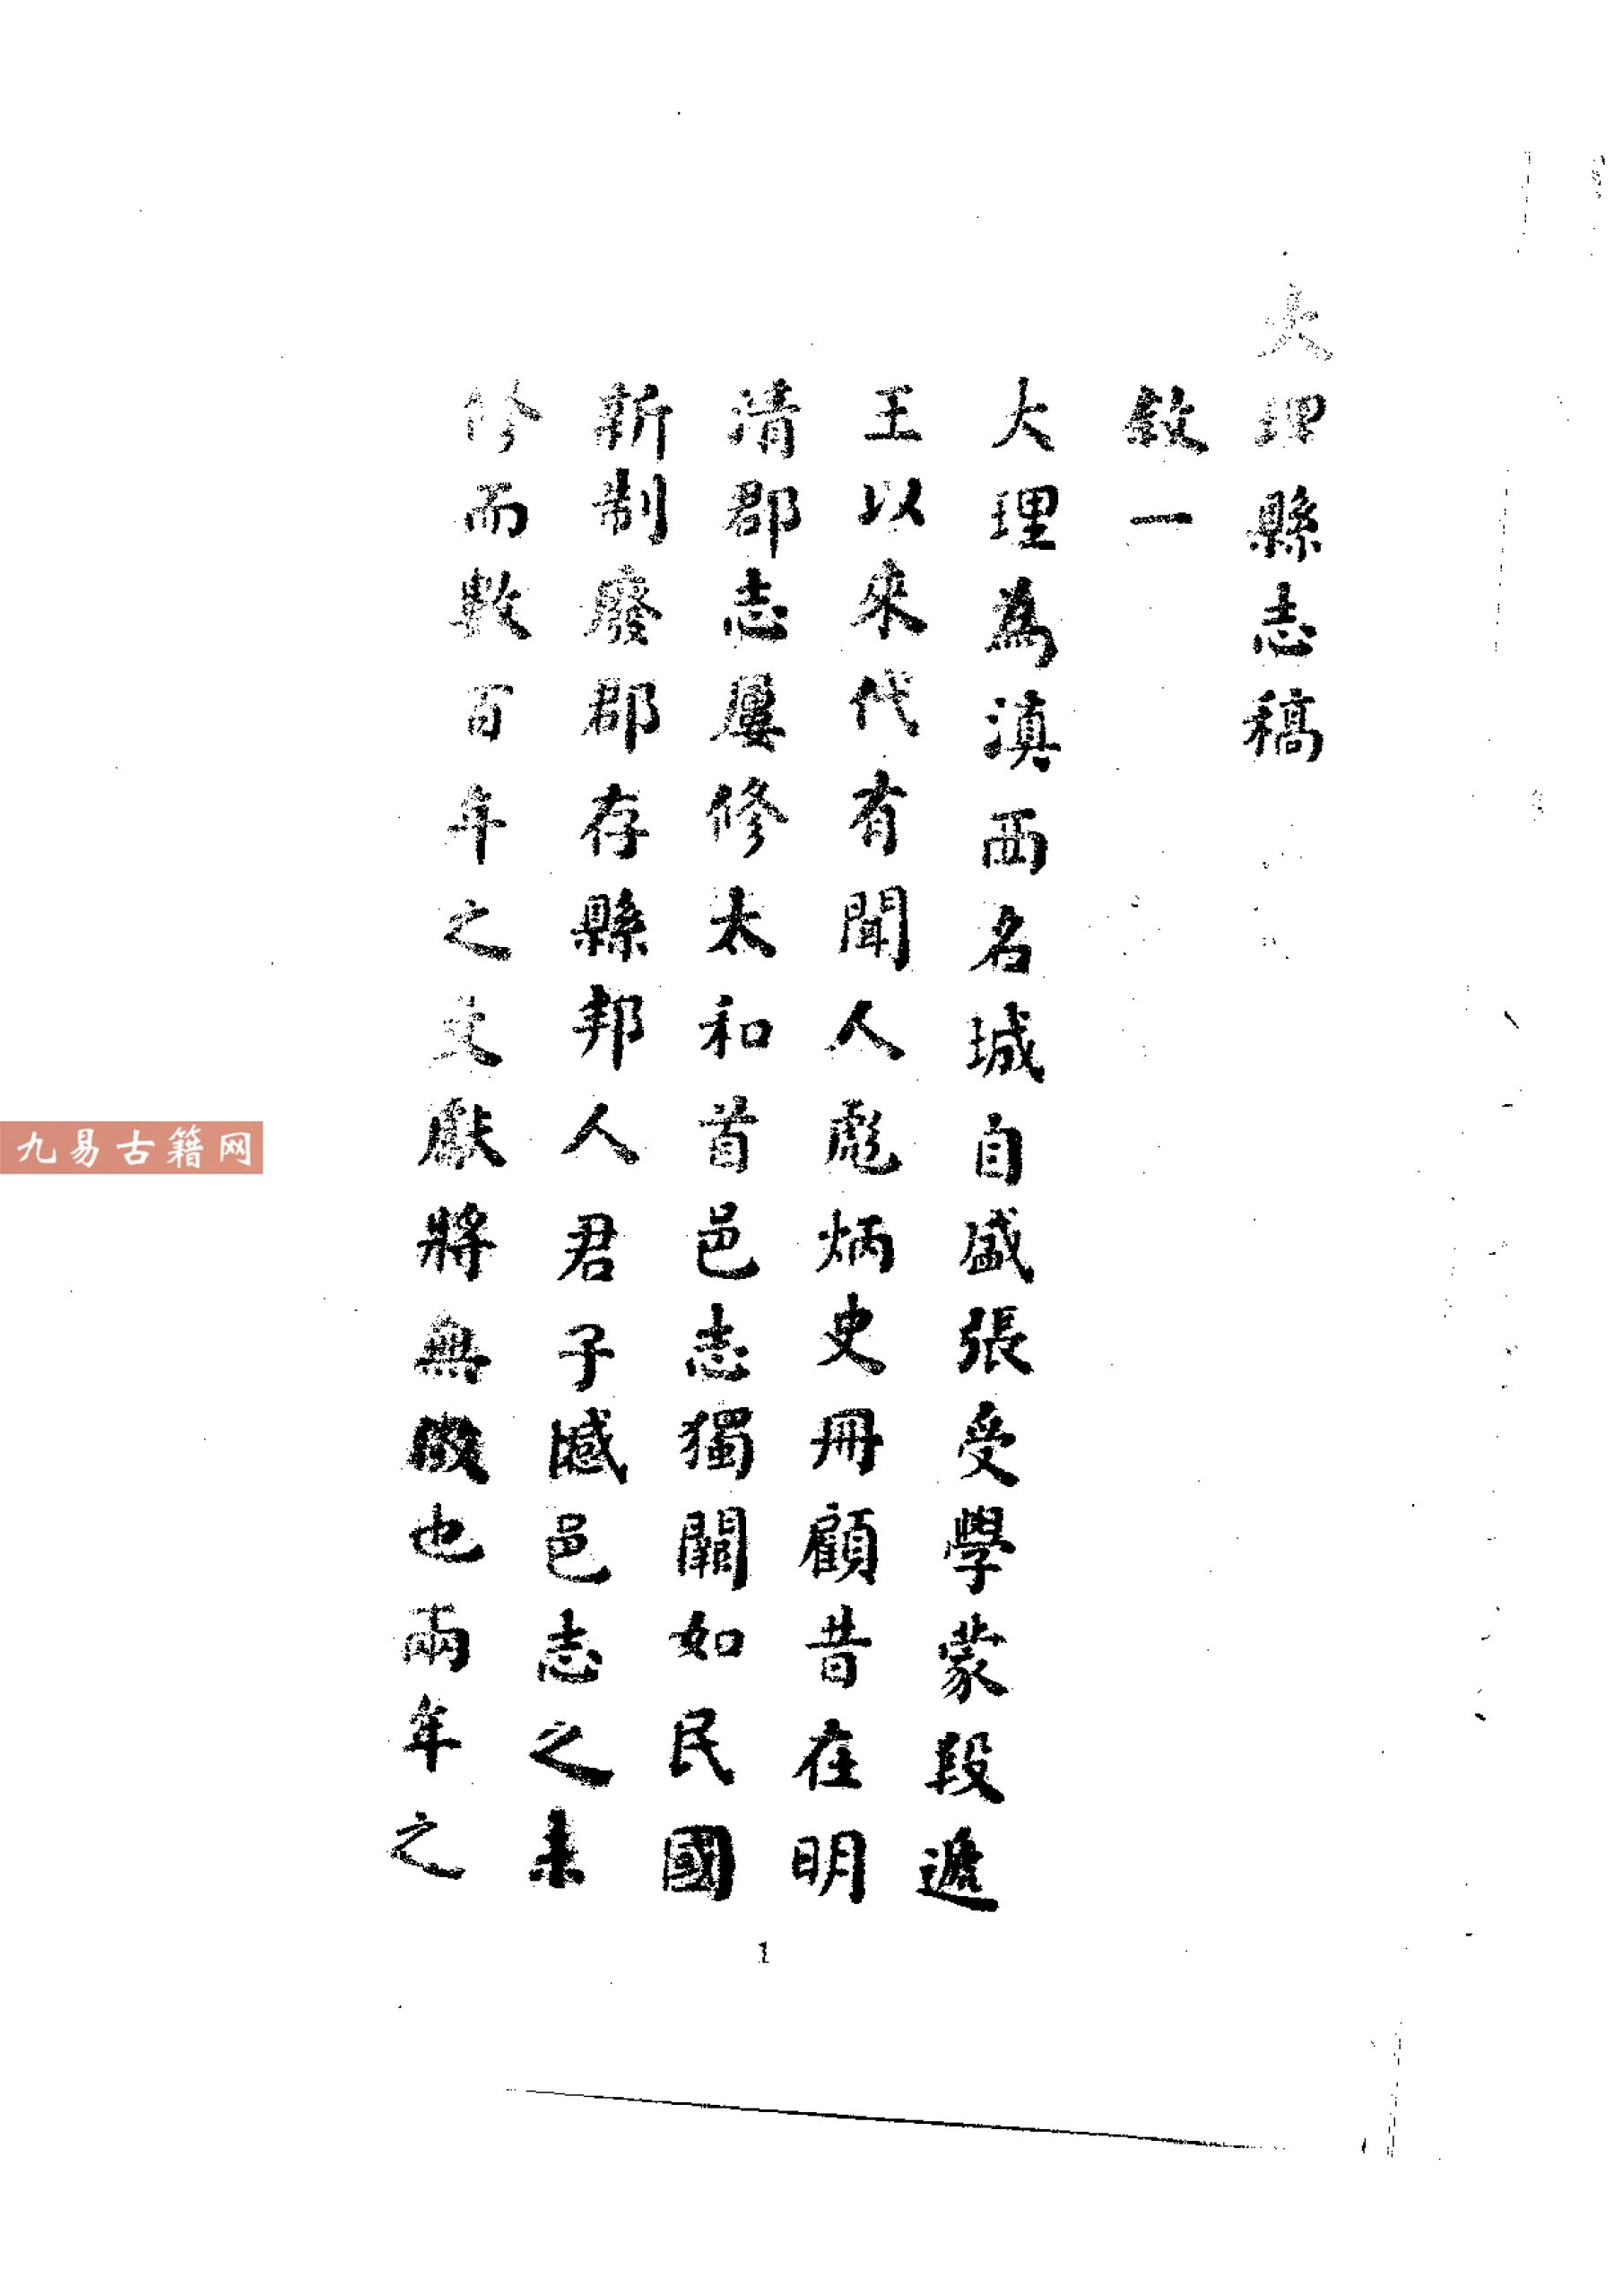 大理縣志稿
敘一
大理為滇西名城自盛張受學蒙段遞
王以來代有聞人彪炳史冊顧昔在明
清郡志屢修太和首邑志獨闕如民國
新制廢郡存縣邦人君子憾邑志之未
修而數百年之文獻將無徵也兩年之
1
九易古籍网